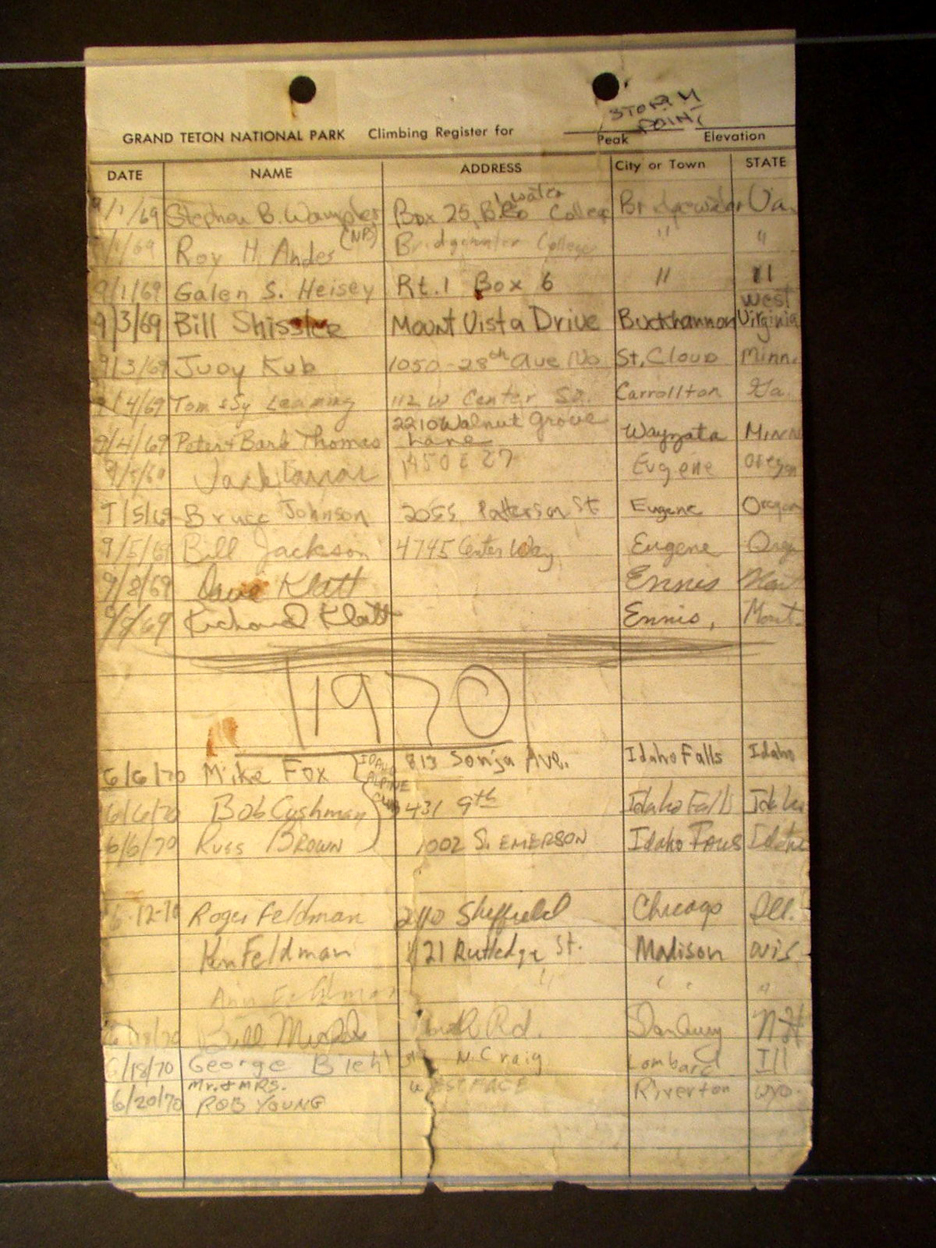 STORMY
POINT
GRAND TETON NATIONAL PARK Climbing Register for
Peak Elevation
DATE NAME ADDRESS City or Town STATE
9/1/69 Stephen B. Wampler Box 25, College Bridgewater Va.
9/1/69 Roy H. Andes (NP) Bridgewater College " "
9/1/69 Galen S. Heisey Rt.1 Box 6 " "
9/3/69 Bill Shissler Mount Vista Drive Buckhannon West Virginia
9/3/69 Judy Kub 1050-28th Ave No St. Cloud Minn.
9/4/69 Tom & Sy Leaming 112 W Center St. Carrollton Ga.
9/4/69 Peter & Barb Thomas 2210 Walnut Grove Lane Wayzata MINN
9/5/69 Jack 1450 E 27 Eugene Oregon
9/5/69 Bruce Johnson 2055 Patterson St Eugene Oregon
9/5/69 Bill Jackson 4745 Center Way Eugene Oreg
9/8/69 Dave Klatt Ennis Mont
9/8/69 Richard Klatt Ennis, Mont.
1970
6/6/70 Mike Fox IDAHO ALPINE CLUB 813 Sonja Ave. Idaho Falls Idaho
6/6/70 Bob Cushman 431 9th Idaho Falls Idaho
6/6/70 Russ BROWN 1002 S. EMERSON Idaho Falls Idaho
6-12-70 Roger Feldman 2110 Sheffield Chicago Ill.
Ken Feldman 1121 Rutledge St. Madison WIS.
Ann Feldman " " "
Bill Rd. N.H
6/18/70 George N. Craig Lombard Ill
6/20/70 Mr. & MRS. ROB YOUNG WEST FACE Riverton wyo.